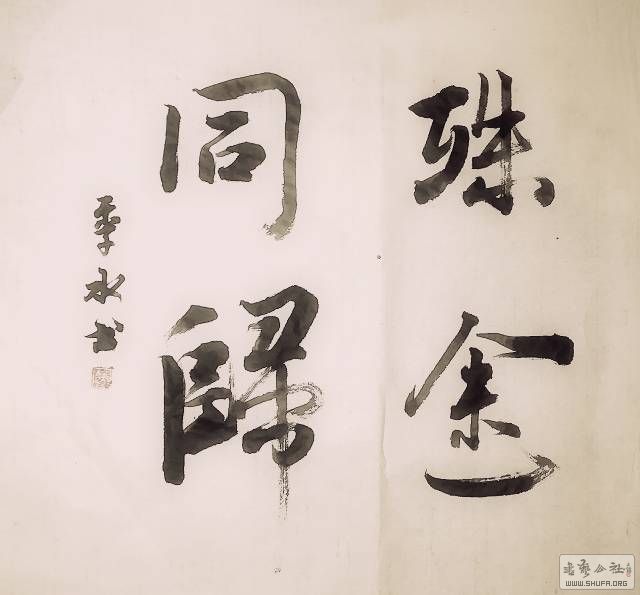 殊途
同歸
季水书
书艺公社
WWW.SHUFA.ORG